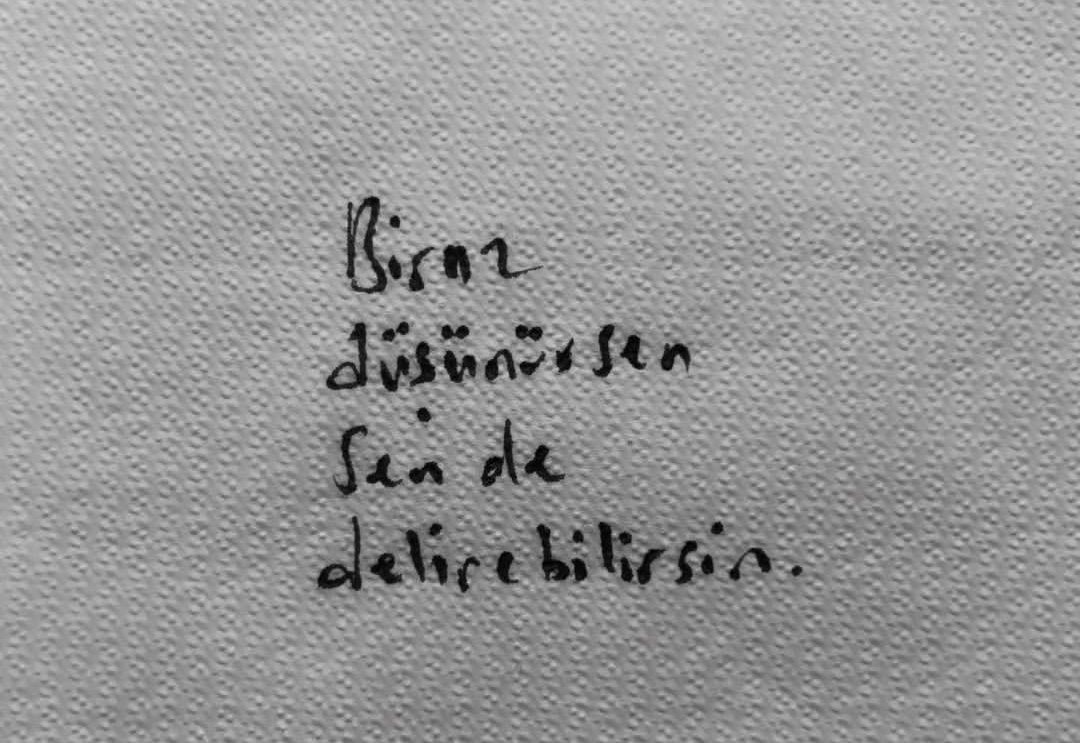 Biraz
düşünürsen
sen de
delirebilirsin.